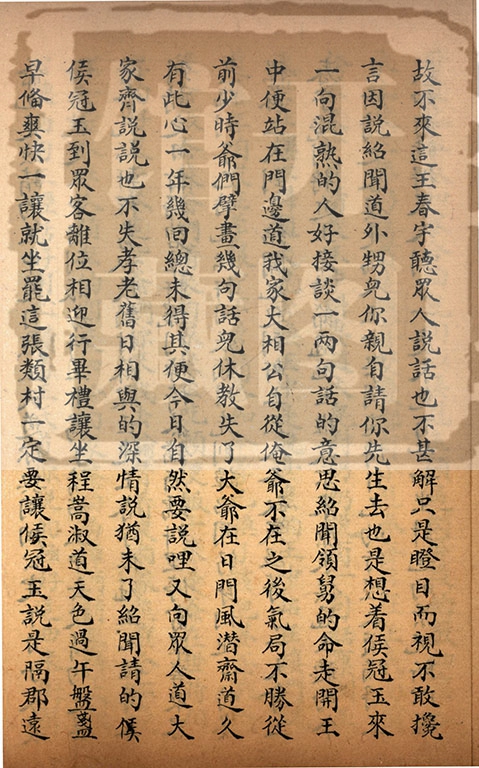 故不來這王春宇聽眾人説話也不甚解只是瞪目而視不敢攙
言因説紹聞道外甥兒你親自請你先生去也是想着侯冠玉來
一句混熟的人好接談一两句話的意思紹聞領舅的命走開王
中便站在門邊道我家大相公自從俺爺不在之後氣局不勝從
前少時爺們擘畫幾句話兒休教失了大爺在日門風潛齋道久
有此心一年幾回總未得其便今日自然要説哩又向眾人道大
家齊説説也不失孝老舊日相與的深情説猶未了紹聞請的侯
侯冠玉到眾客離位相迎行畢禮讓坐程嵩淑道天色過午盤盞
早俻爽快一讓就坐罷這張類村一定要讓侯冠玉説是隔郡遠